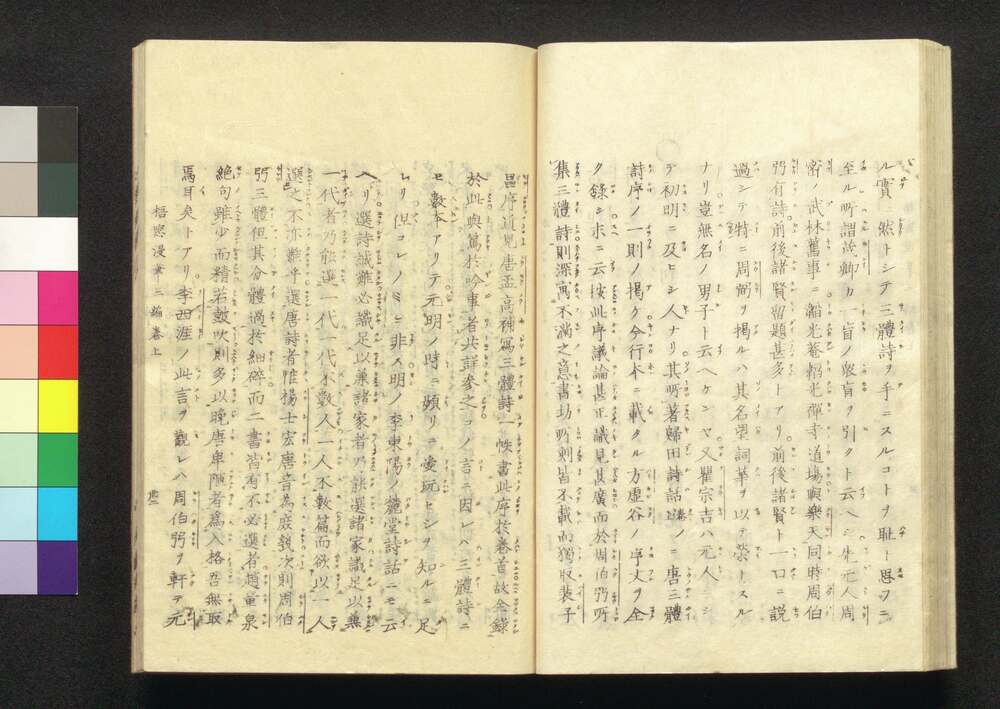 ル實ニ然トシテ三體詩ヲ手ニスルコトヲ耻ト思フニ
至ル所謂 一盲ノ衆盲ヲ引クト云ヘシ 元人周
密ノ武林舊事ニ韜光菴韜光禪寺道場與樂天同時周伯
弜有詩前後諸賢留題甚多トアリ前後諸賢ト一口ニ説
過シテ特ニ周弼ヲ掲ルハ其名望詞華ヲ以テ榮トスル
ナリ豈無名ノ男子ト云ヘケンヤ又瞿宗吉ハ元人ニシ
テ初明ニ及ヒシ人ナリ其所著歸田詩話 ノニ唐三體
詩序ノ一則ノ掲ク今行本ニ載タル方虚谷ノ序文ヲ全
ク錄シ末ニ云按此序議論甚正識見甚廣而於周伯弜所
集三體詩則深寓不滿之意書坊所刻皆不載而獨取裴子
序道見唐孟高補寫三體詩一帙書此序於卷首故全錄
於此與篤於吟事者共詳參之コノ言ニ因レハ三體詩ニ
モ數本アリテ元明ノ時ニ頻リニ愛玩セシヲ知ルニ足
レリ但コレノミニ非ス明ノ李東陽ノ麓堂詩話ニモ云
ヘリ選詩誠難必識足以兼諸家者乃能選諸家識足以兼
一代者乃能選一代一代不數人一人不數篇而欲以一人
選之不亦難乎選唐詩者惟楊士宏唐音為庶幾次則周伯
弜三體但其分體過於細碎而二書皆有不必選者趙章泉
絶句雖少而精若鼓吹則多以晩唐卑陋者爲入格吾無取
焉耳矣トアリ李西涯ノ此言ヲ觀レハ周伯弜ヲ軒テ元
梧窓漫筆三編卷上